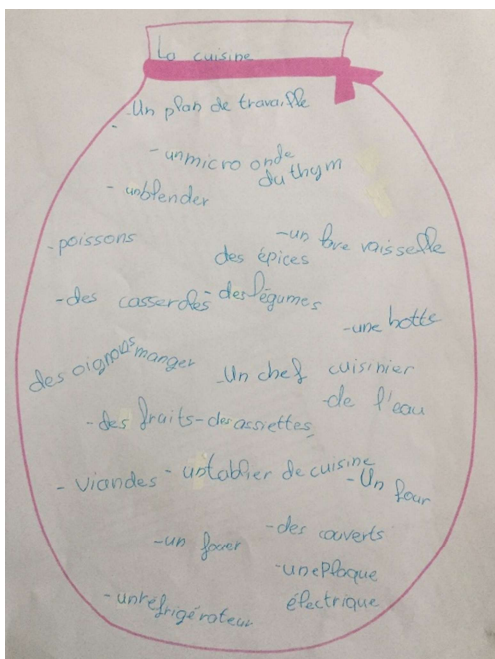 La cuisine
-Un plan de travaille
-
-un micro onde
du thym
-un blender
-poissons
-un lave vaisselle
des épices
-des casseroles
-des légumes
-une hotte
des oignons
manger
-Un chef cuisinier
-de l'eau
-des fruits
-des assiettes
-viandes
-un tablier de cuisine
-Un four
-des couverts
-un
-une Plaque
électrique
-un réfrigérateur